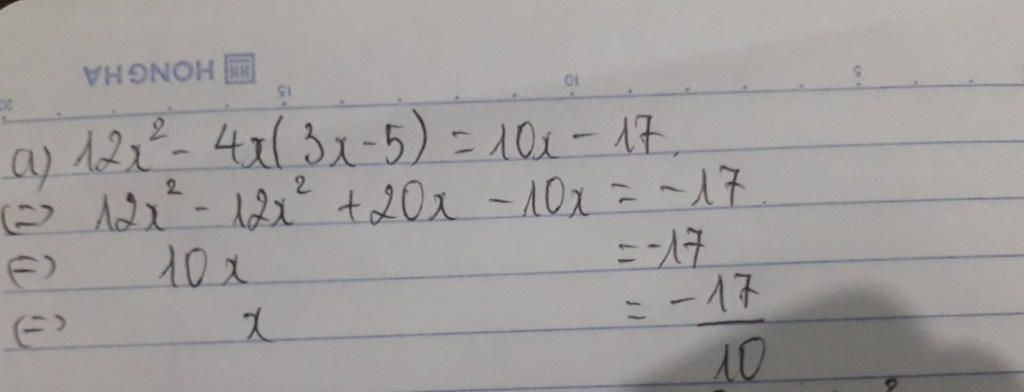 HONGHA
20 15 10 5
a) 12x² - 4x(3x-5) = 10x - 17.
(=> 12x² - 12x² + 20x - 10x = -17.
(=> 10x = -17
(=> x = -17/10